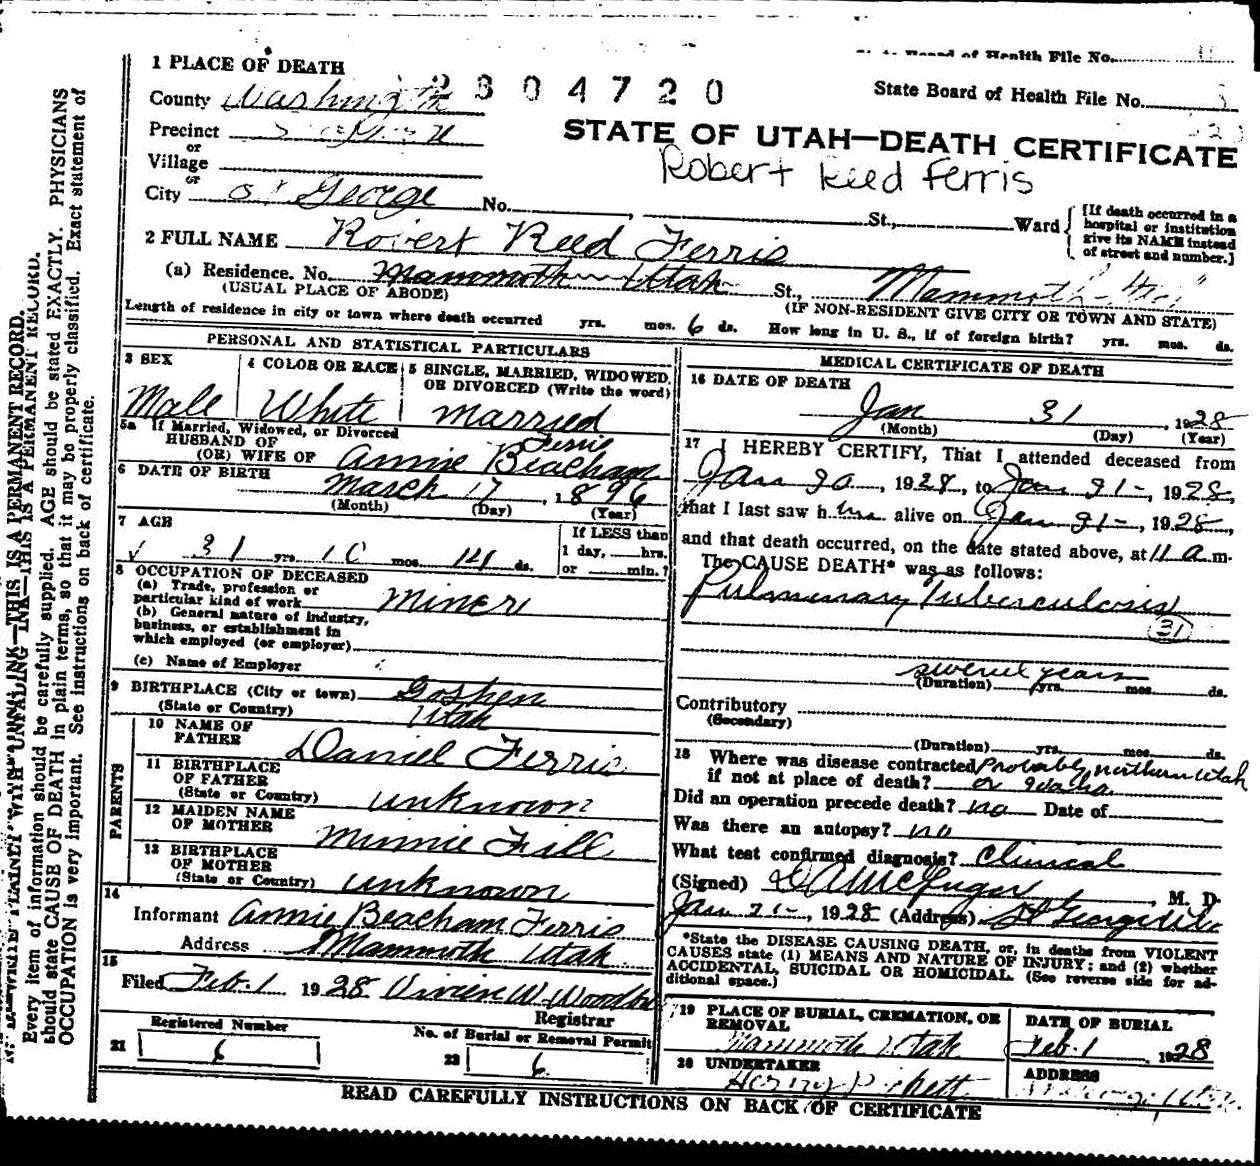 State Board of Health File No.
1 PLACE OF DEATH
2304720
County Washington
State Board of Health File No. 3
Precinct
or
STATE OF UTAH—DEATH CERTIFICATE
Village
Robert Reed Ferris
or
City St George No. St., Ward
[If death occurred in a hospital or institution give its NAME instead of street and number.]
2 FULL NAME Robert Reed Ferris
(a) Residence. No. Mammoth Utah St., Mammoth
(USUAL PLACE OF ABODE) (IF NON-RESIDENT GIVE CITY OR TOWN AND STATE)
Length of residence in city or town where death occurred yrs. mos. 6 ds. How long in U. S., if of foreign birth? yrs. mos. ds.
PERSONAL AND STATISTICAL PARTICULARS
3 SEX 4 COLOR OR RACE 5 SINGLE, MARRIED, WIDOWED, OR DIVORCED (Write the word)
Male White Married
5a If Married, Widowed, or Divorced
HUSBAND OF Ferris
(OR) WIFE OF Annie Beacham
6 DATE OF BIRTH March 17, 1896
(Month) (Day) (Year)
7 AGE If LESS than
31 yrs. 10 mos. 14 ds. 1 day, hrs.
or min.?
8 OCCUPATION OF DECEASED
(a) Trade, profession or
particular kind of work Miner
(b) General nature of industry,
business, or establishment in
which employed (or employer)
(c) Name of Employer
9 BIRTHPLACE (City or town) Goshen
(State or Country) Utah
PARENTS
10 NAME OF
FATHER Daniel Ferris
11 BIRTHPLACE
OF FATHER
(State or Country) unknown
12 MAIDEN NAME
OF MOTHER Minnie Fill
13 BIRTHPLACE
OF MOTHER
(State or Country) unknown
14
Informant Annie Beacham Ferris
Address Mammoth Utah
15
Filed Feb. 1 1928 Vivien W Woodbury
Registrar
Registered Number No. of Burial or Removal Permit
21 6 22 6
MEDICAL CERTIFICATE OF DEATH
16 DATE OF DEATH
Jan 31, 1928
(Month) (Day) (Year)
17 I HEREBY CERTIFY, That I attended deceased from
Jan 30, 1928, to Jan 31-, 1928,
that I last saw him alive on Jan 31-, 1928,
and that death occurred, on the date stated above, at 11 a m.
The CAUSE DEATH* was as follows:
Pulmonary Tuberculosis
31
several years
(Duration) yrs. mos. ds.
Contributory
(Secondary)
(Duration) yrs. mos. ds.
18 Where was disease contracted Probably northern Utah
if not at place of death? or Idaho
Did an operation precede death? no Date of
Was there an autopsy? no
What test confirmed diagnosis? Clinical
(Signed) D A McGregor, M. D.
Jan 31-, 1928 (Address) St George Utah
*State the DISEASE CAUSING DEATH, or, in deaths from VIOLENT
CAUSES state (1) MEANS AND NATURE OF INJURY; and (2) whether
ACCIDENTAL, SUICIDAL OR HOMICIDAL. (See reverse side for ad-
ditional space.)
19 PLACE OF BURIAL, CREMATION, OR DATE OF BURIAL
REMOVAL
Mammoth Utah Feb. 1, 1928
20 UNDERTAKER ADDRESS
Henry Pickett
READ CAREFULLY INSTRUCTIONS ON BACK OF CERTIFICATE
Every item of information should be carefully supplied. AGE should be stated EXACTLY. PHYSICIANS
should state CAUSE OF DEATH in plain terms, so that it may be properly classified. Exact statement of
OCCUPATION is very important. See instructions on back of certificate.